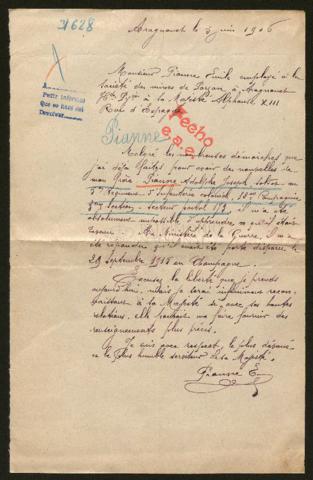 31628
Aragnouet le 3 juin 1916
A
Petit Informe
Que se hace del
Devolver
Monsieur Pianne Emile employé à la
Société des mines de Parzan à Aragnouet
Htes Pyr. à Sa Majesté Alphonse XIII
Roi d'Espagne
Hecho
e.a.a.
Pianne
Malgré les nombreuses démarches que
j'ai déjà faites pour avoir des nouvelles de
mon frère Pianne Adolphe Joseph soldat au
5e Régiment d'Infanterie coloniale, 13e Compagnie
section, secteur postal il m'a été
absolument impossible d'apprendre ce qu'il était
devenu. Au Ministère de la Guerre, il m'a
été répondu qu'il avait été porté disparu le
29 septembre 1915 en Champagne.
Excusez la liberté que je prends
aujourd'hui, mais je serai infiniment recon-
naissant à Sa Majesté si avec ses hautes
relations, elle pouvait me faire fournir des
renseignements plus précis.
Je suis avec respect, le plus dévoué
et le plus humble serviteur de sa Majesté.
Pianne E